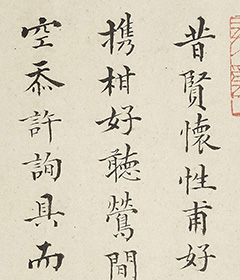 昔賢懷性甫好
携柑好聽鶯間
空忝許詢具而